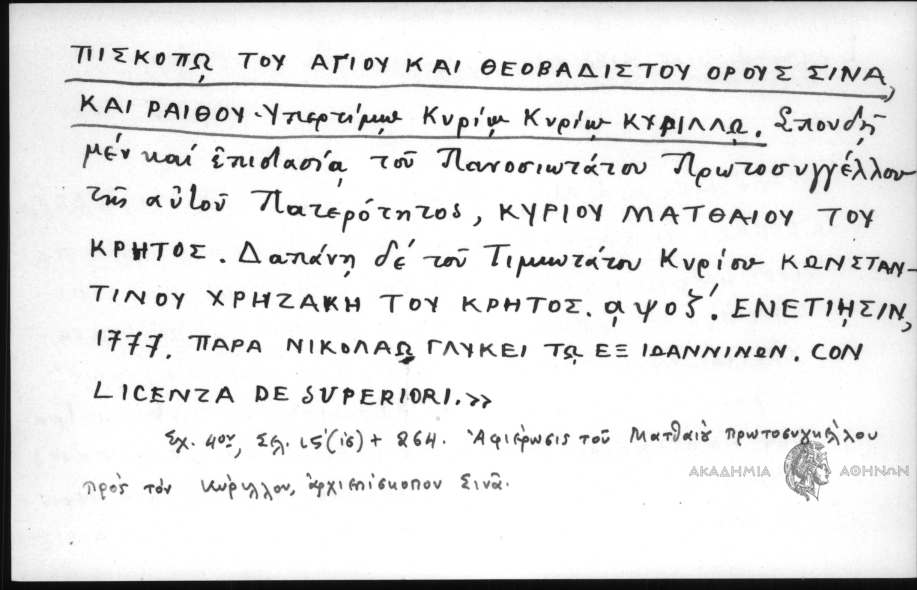 ΠΙΣΚΟΠῼ ΤΟΥ ΑΓΙΟΥ ΚΑΙ ΘΕΟΒΑΔΙΣΤΟΥ ΟΡΟΥΣ ΣΙΝΑ,
ΚΑΙ ΡΑΙΘΟΥ. Ὑπερτίμῳ Κυρίῳ Κυρίῳ ΚΥΡΙΛΛῼ. Σπουδῇ
μέν καί ἐπιστασίᾳ τοῦ Πανοσιωτάτου Πρωτοσυγγέλλου
τῆς αὐτοῦ Πατερότητος, ΚΥΡΙΟΥ ΜΑΤΘΑΙΟΥ ΤΟΥ
ΚΡΗΤΟΣ. Δαπάνῃ δέ τοῦ Τιμιωτάτου Κυρίου ΚΩΝΣΤΑΝ-
ΤΙΝΟΥ ΧΡΗΖΑΚΗ ΤΟΥ ΚΡΗΤΟΣ. αψοζ΄. ΕΝΕΤΙῌΣΙΝ,
1777. ΠΑΡΑ ΝΙΚΟΛΑῼ ΓΛΥΚΕΙ Τῼ ΕΞ ΙΩΑΝΝΙΝΩΝ. CON
LICENZA DE SUPERIORI.»
Σχ. 4ον, Σελ. ις΄(ιδ) + 264. Ἀφιέρωσις τοῦ Ματθαίου πρωτοσυγκέλλου
πρὸς τὸν Κύριλλον, ἀρχιεπίσκοπον Σινᾶ.
ΑΚΑΔΗΜΙΑ ΑΘΗΝΩΝ